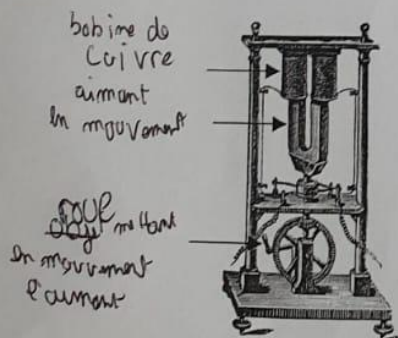 bobine de
Cuivre
aimant
en mouvement
roue mettant
en mouvement
l'aimant